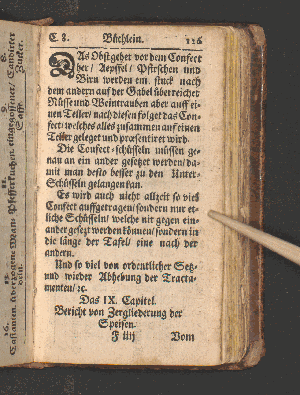 C. 8. Büchlein. 126
DAs Obst gehet vor dem Confect
her / Aepffel / Pfirschen und
Birn werden ein stuck nach
dem andern auf der Gabel überreichet
Nüsse und Weintrauben aber auff ei-
nen Teller / nach diesen folget das Con-
fect / welches alles zusammen auf einen
Teller geleget und præsentiret wird.
Die Confect-schüsseln müssen ge-
nau an ein ander gesetzet werden / da-
mit man desto besser zu den Unter-
Schüsseln gelangen kan.
Es wird auch nicht allzeit so viel
Confect auffgetragen / sondern nur et-
liche Schüsseln / welche nit gegen ein-
ander gesetzt werden können / sondern in
die länge der Tafel / eine nach der
andern.
Und so viel von ordentlicher Setz-
und wieder Abhebung der Tracta-
menten / ꝛc.
Das IX. Capitel.
Bericht von Zergliederung der
Speisen.
F iiij Vom
Candirter
Zucker.
eingegossener /
Pfefferkuchen
Castanien, überzogene Man-